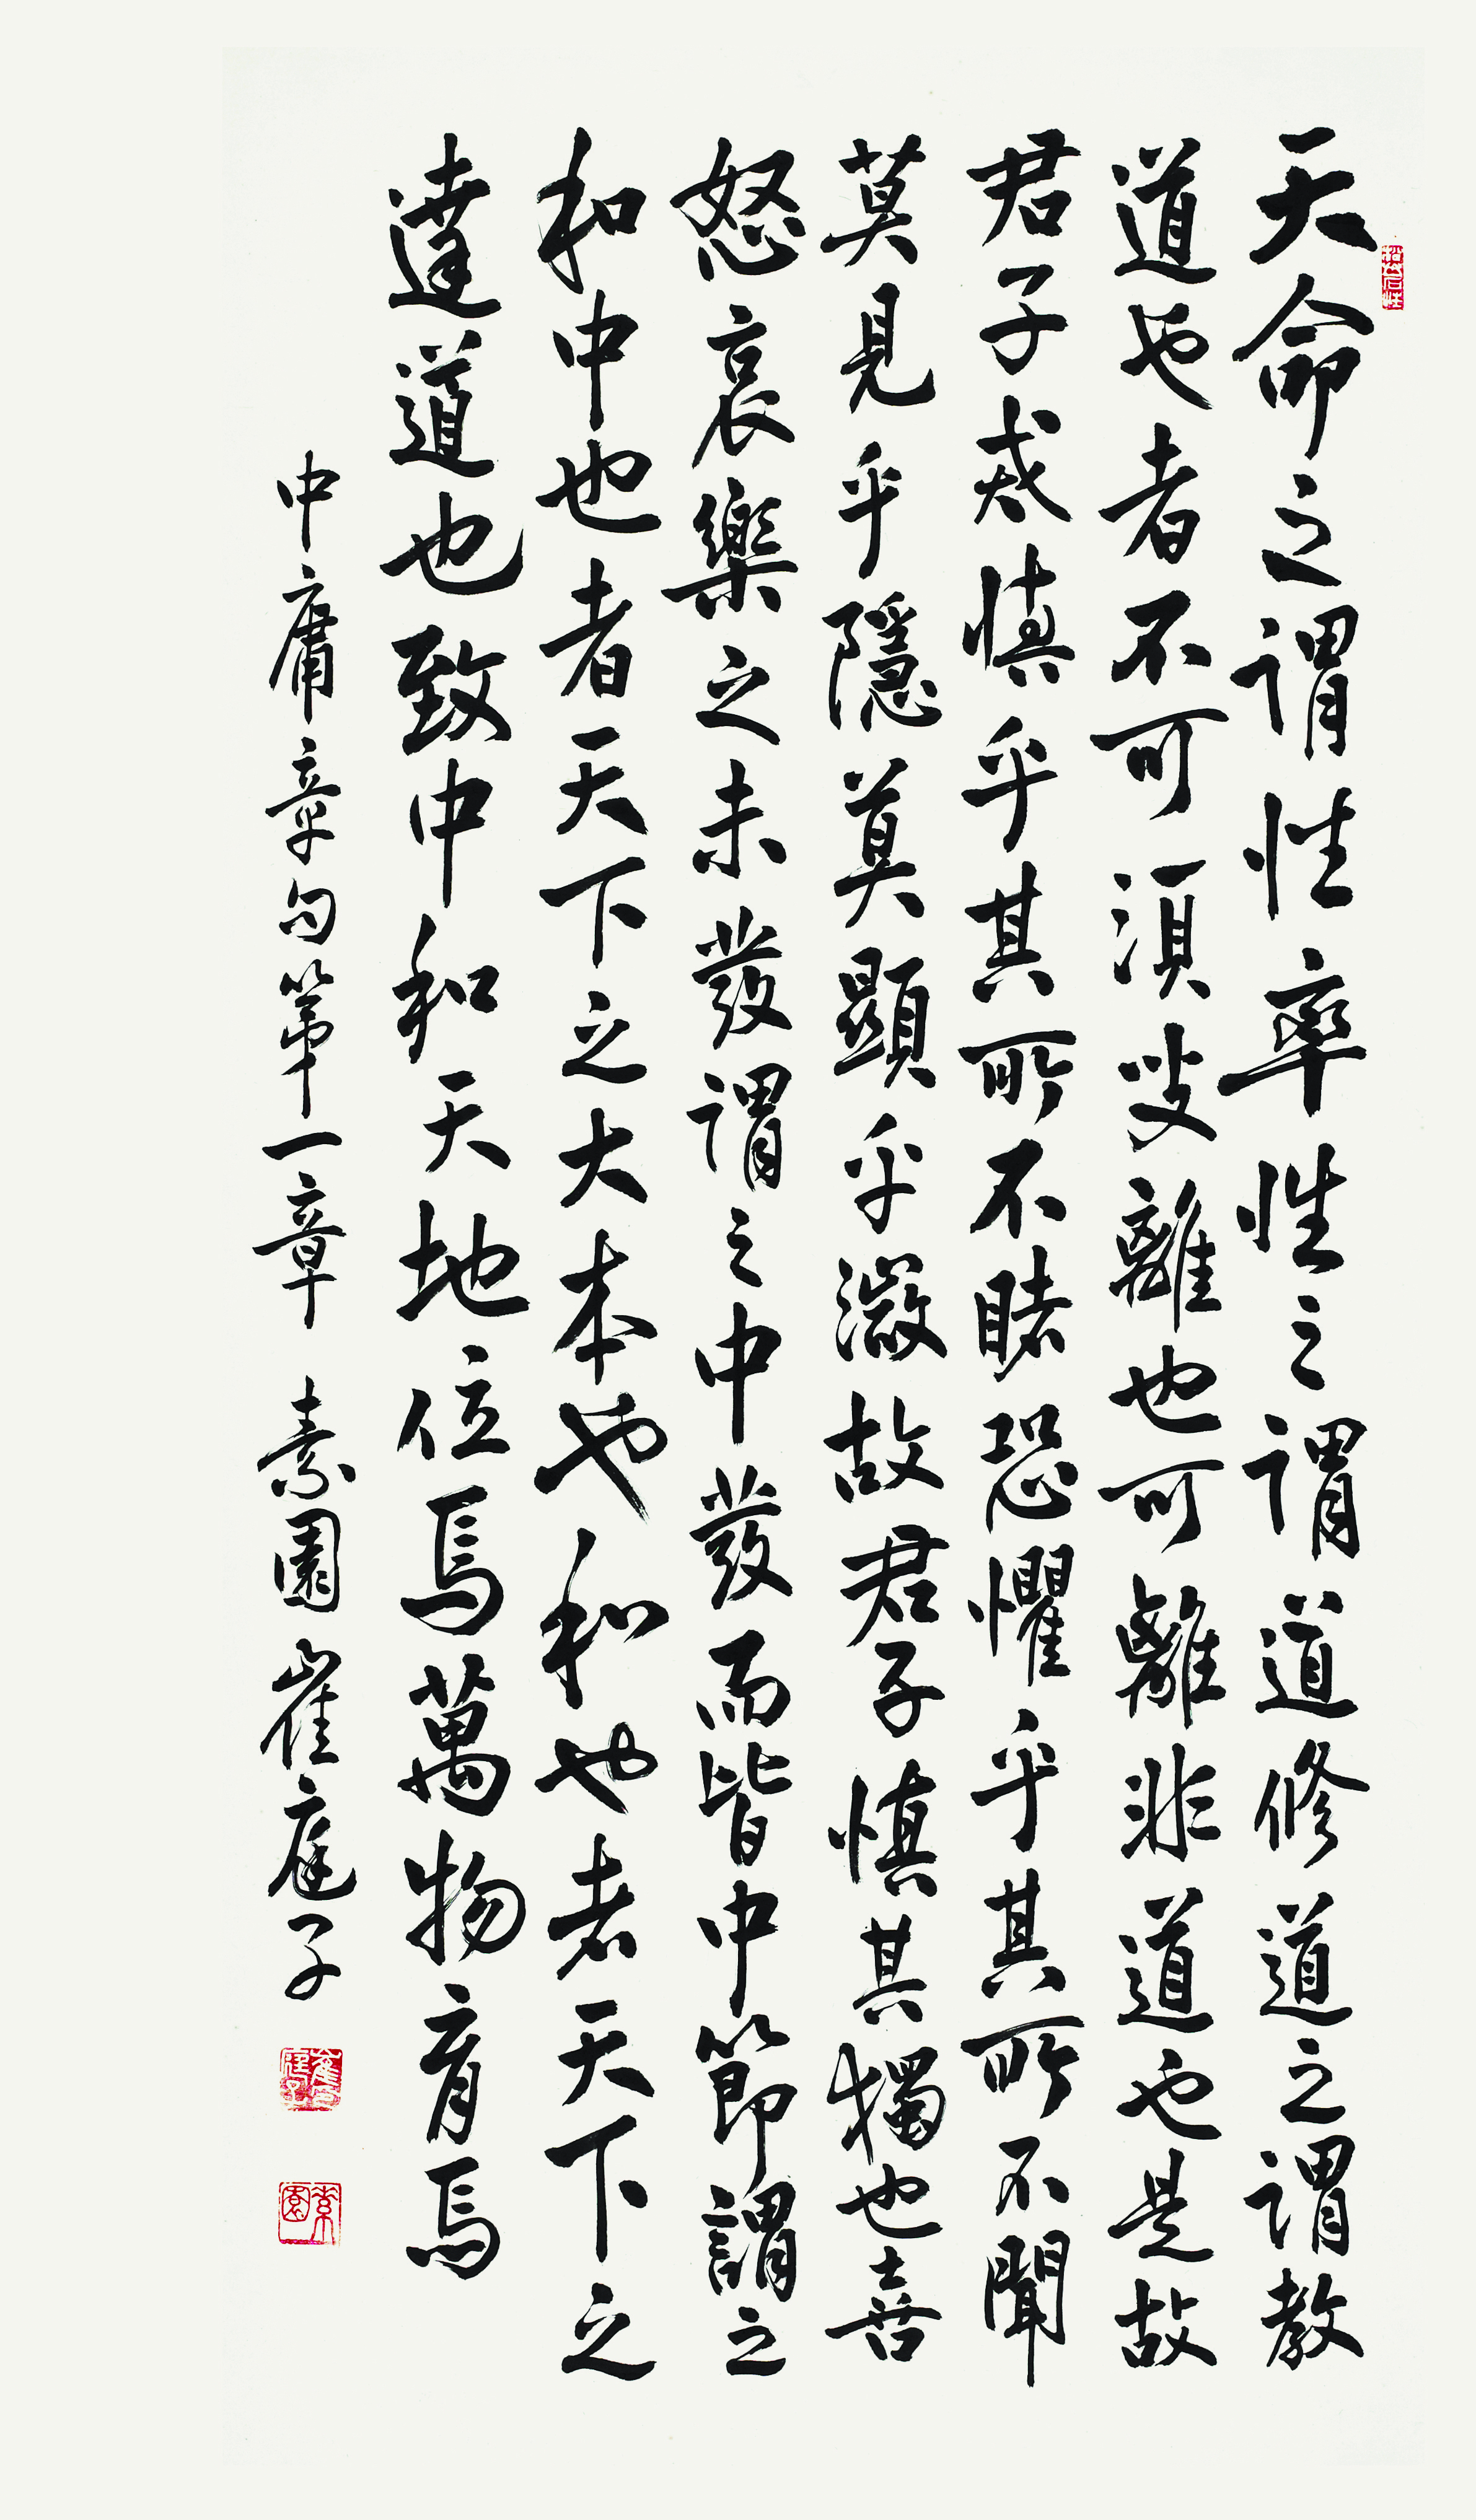 天命之謂性率性之謂道修道之謂教
道也者不可須叟離也可離非道也是故
君子戒慎乎其所不睹恐懼乎其所不聞
莫見乎隱莫顯乎微故君子慎其獨也喜
怒哀樂之未發謂之中發而皆中節謂之
和中也者天下之大本也和也者天下之
達道也致中和天地位焉萬物育焉
中庸章句第一章 素園 崔庭子
素園